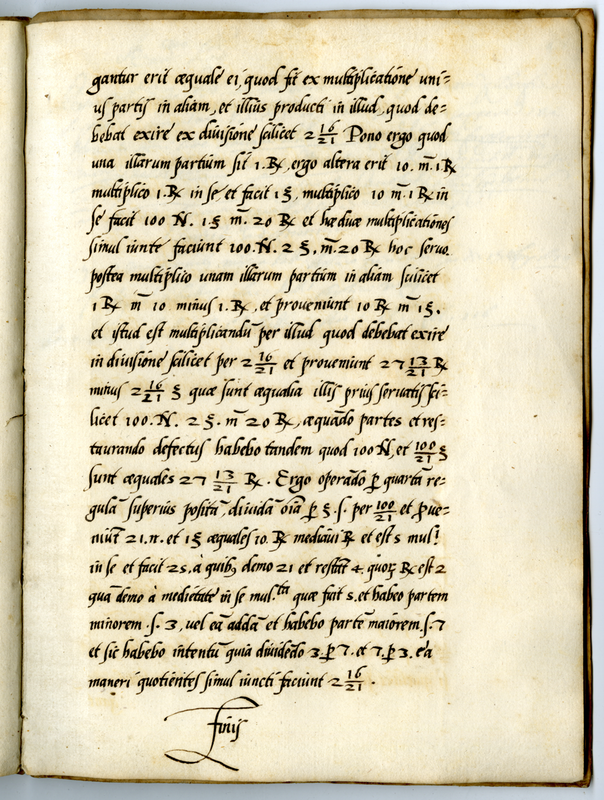 gantur erit æquale ei, quod fit ex multiplicatione uni=
us partis in aliam, et illius producti in illud, quod de=
bebat exire ex diuisione scilicet 2 16/21 Pono ergo quod
una illarum partium sit 1. ℞, ergo altera erit 10. m̃. 1 ℞
multiplico 1. ℞ in se, et facit 1 ξ, multiplico 10 m̃. 1 ℞ in
se facit 100 N. 1. ξ m̃. 20 ℞ et hæ duæ multiplicationes
simul iuncte faciunt 100. N. 2 ξ, m̃. 20 ℞ hoc seruo.
postea multiplico unam illarum partium in aliam scilicet
1 ℞ m̃ 10 minus 1. ℞, et proveniunt 10 ℞ m̃ 1 ξ.
et istud est multiplicandũ per illud quod debebat exire
in diuisione scilicet per 2 16/21 et proveniunt 27 13/21 ℞
minus 2 16/21 ξ quæ sunt æqualia illis prius seruatis sci=
licet 100. N. 2 ξ. m̃ 20 ℞, æquãdo partes et res=
taurando defectus habebo tandem quod 100 N, et 100/21 ξ
sunt æquales 27 13/21 ℞. Ergo operãdo p̱ quartã re=
gulã superius positã, diuidã oĩa p̱ ξ. s. per 100/21 et ꝓue=
niũt 21. n. et 1 ξ æquales 10. ℞ mediaui ℞ et est 5 mul.
in se et facit 25. à quibꝫ demo 21 et restãt 4. quoꝝ ℞ est 2
quã demo à medietate in se mul.ta quæ fuit 5. et habeo partem
minorem .s. 3, vel eã addã et habebo partẽ maiorem .s. 7
et sic habebo intentũ quia diuidẽdo 3. p̱ 7. et 7. p̱ 3. ea
maneri quotientes simul iuncti faciunt 2 16/21.
Finis